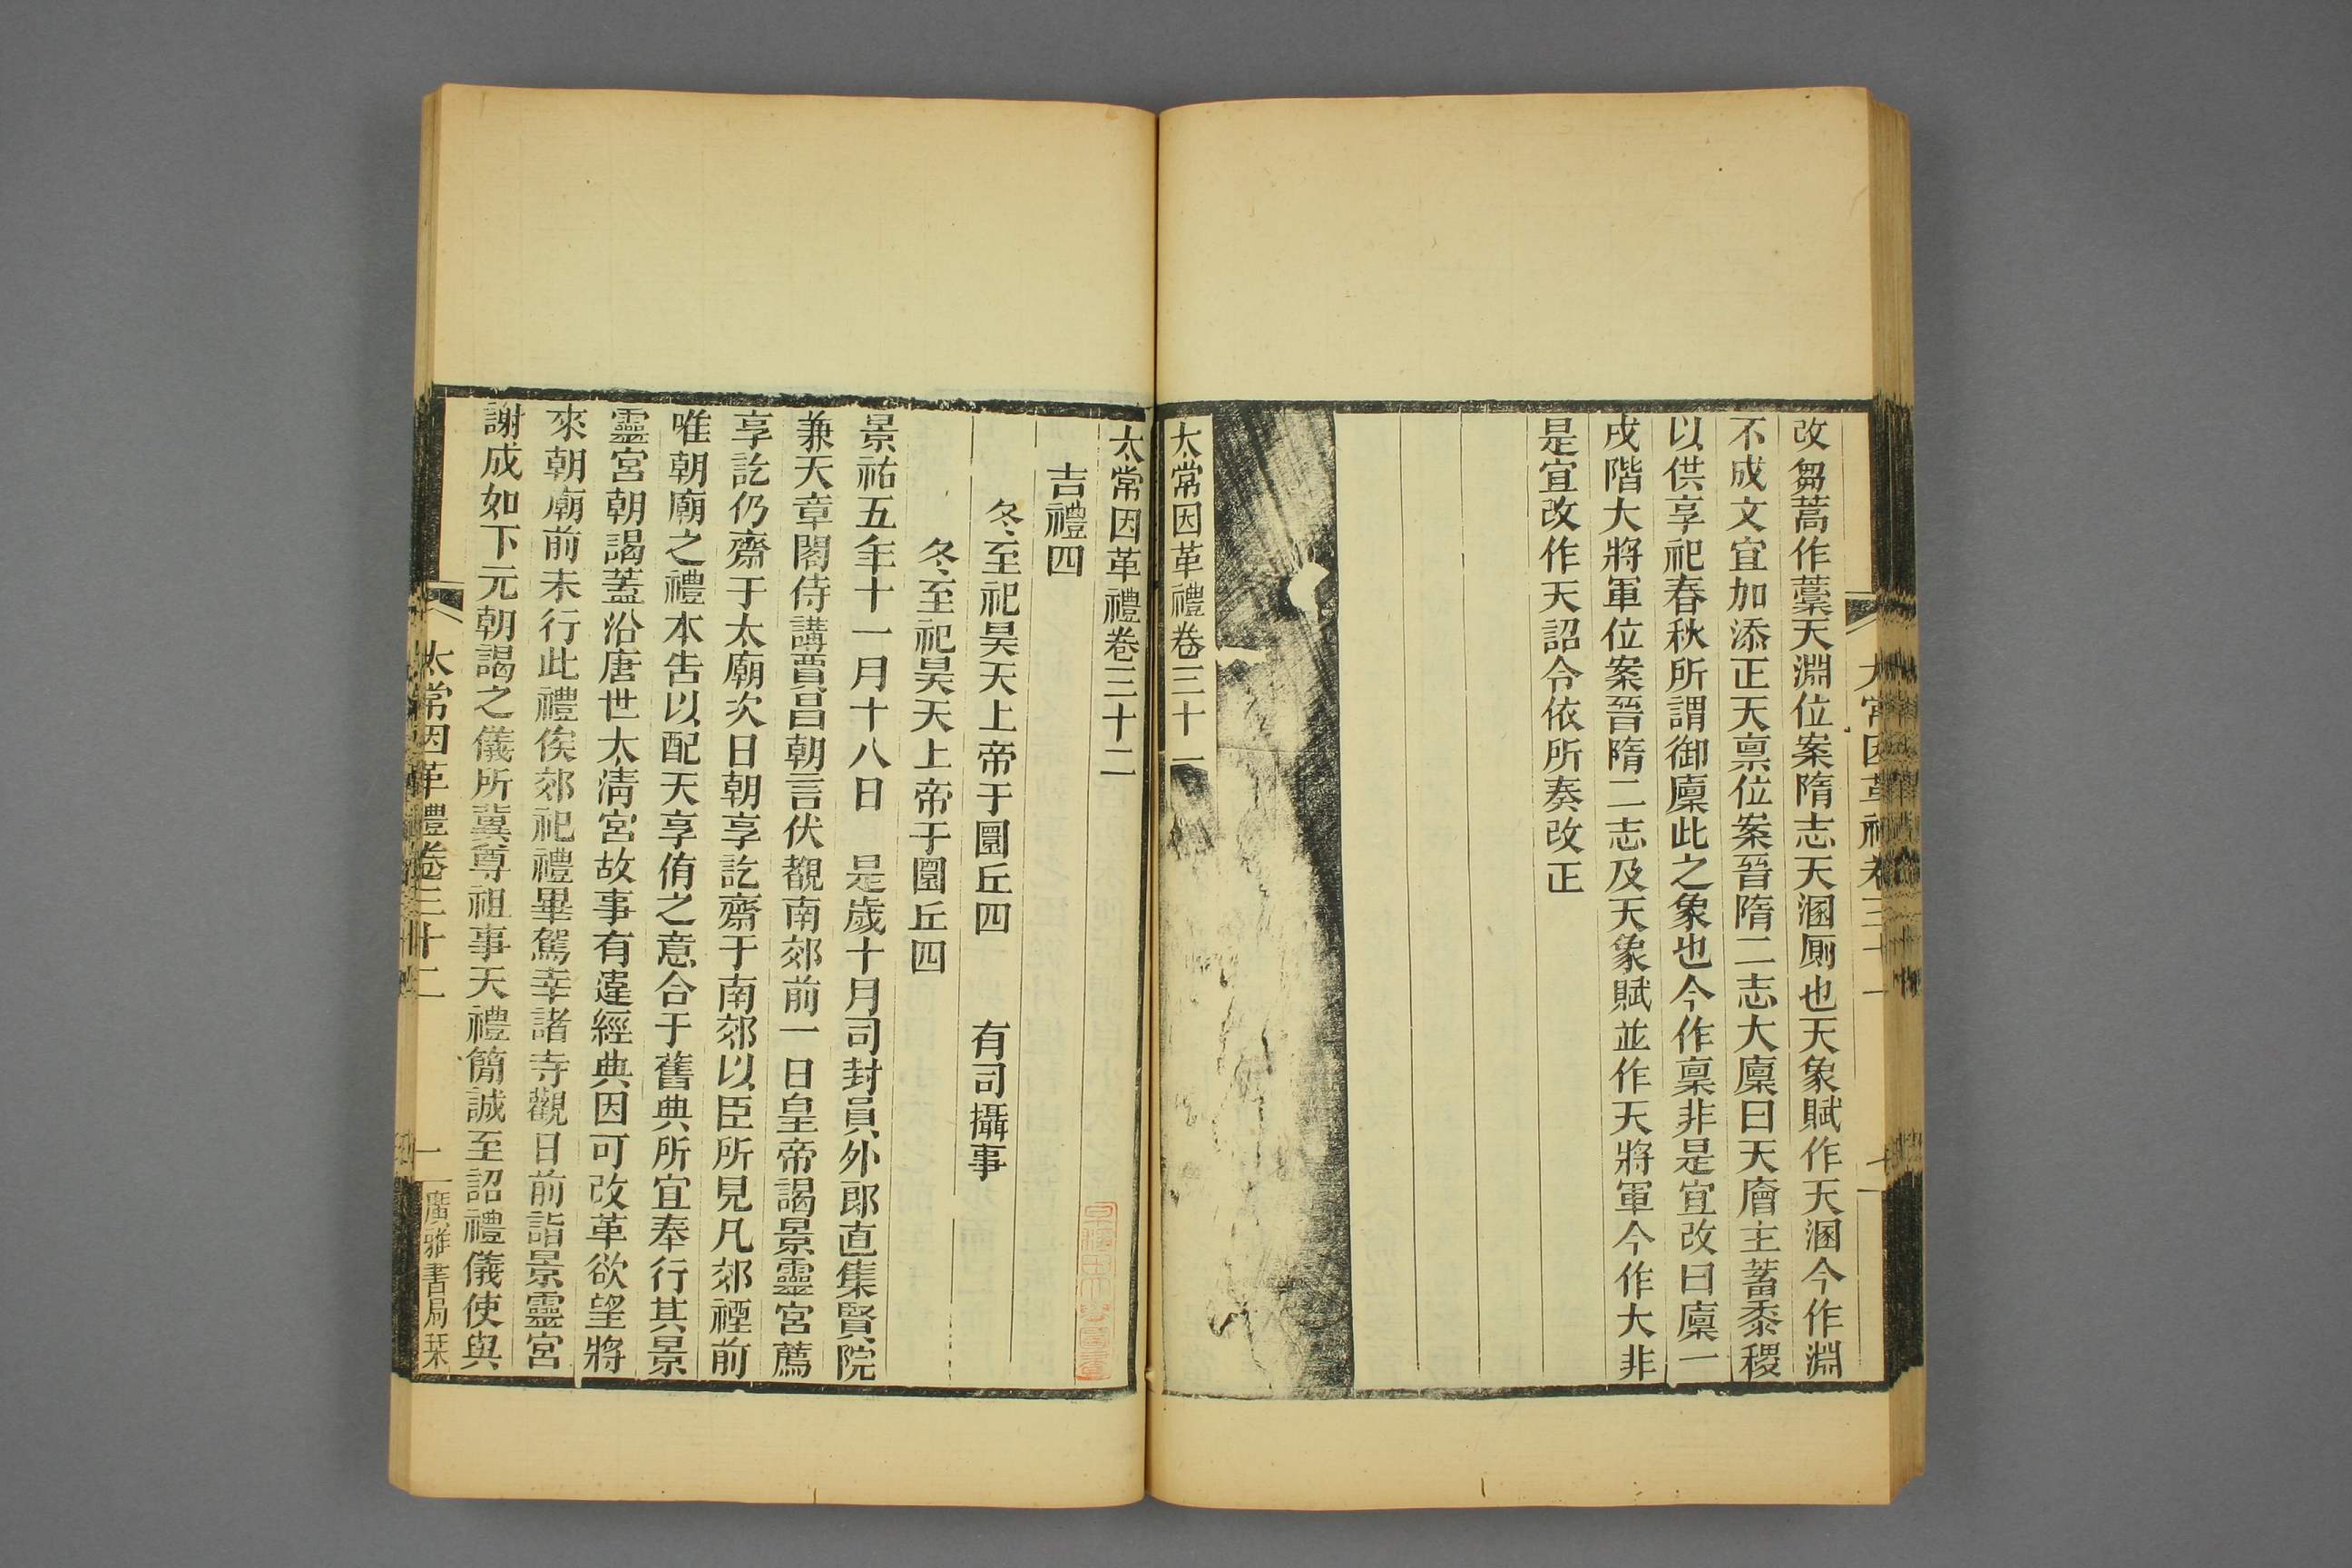 改芻蒿作藁天淵位案隋志天溷厠也天象賦作天溷今作淵
不成文宜加添正天稟位案晉隋二志大廩曰天廥主蓄黍稷
以供享祀春秋所謂御廩此之象也今作稟非是宜改曰廩一
戌階大將軍位案晉隋二志及天象賦並作天將軍今作大非
是宜改作天詔令依所奏改正
太常因革禮卷三十一
太常因革禮卷三十二
吉禮四
冬至祀昊天上帝于圜丘四　有司攝事
冬至祀昊天上帝于圜丘四
景祐五年十一月十八日　是歲十月司封員外郎直集賢院
兼天章閣侍講賈昌朝言伏覩南郊前一日皇帝謁景靈宮薦
享訖仍齋于太廟次日朝享訖齋于南郊以臣所見凡郊禋前
唯朝廟之禮本告以配天享侑之意合于舊典所宜奉行其景
靈宮朝謁蓋沿唐世太清宮故事有違經典因可改革欲望將
來朝廟前未行此禮俟郊祀禮畢駕幸諸寺觀日前詣景靈宮
謝成如下元朝謁之儀所冀尊祖事天禮簡誠至詔禮儀使與
太常因革禮卷三十二　一　廣雅書局栞